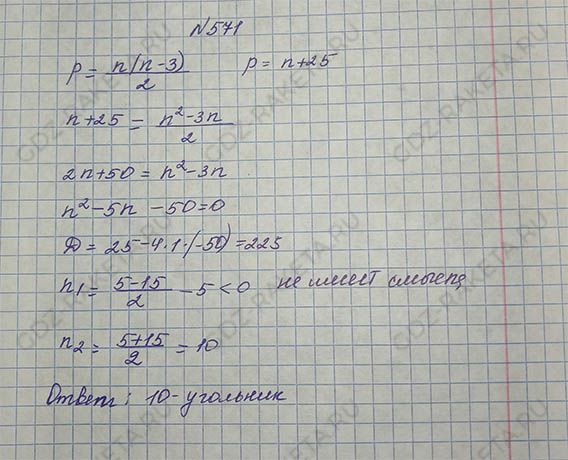 №571
P = n(n-3)/2 P = n+25
n+25 = n²-3n/2
2n+50 = n²-3n
n²-5n -50=0
D = 25-4·1·(-50) =225
n₁ = 5-15/2 -5 <0 не имеет смысла
n₂ = 5+15/2 = 10
Ответ: 10-угольник
GDZ-RAKETA.RU